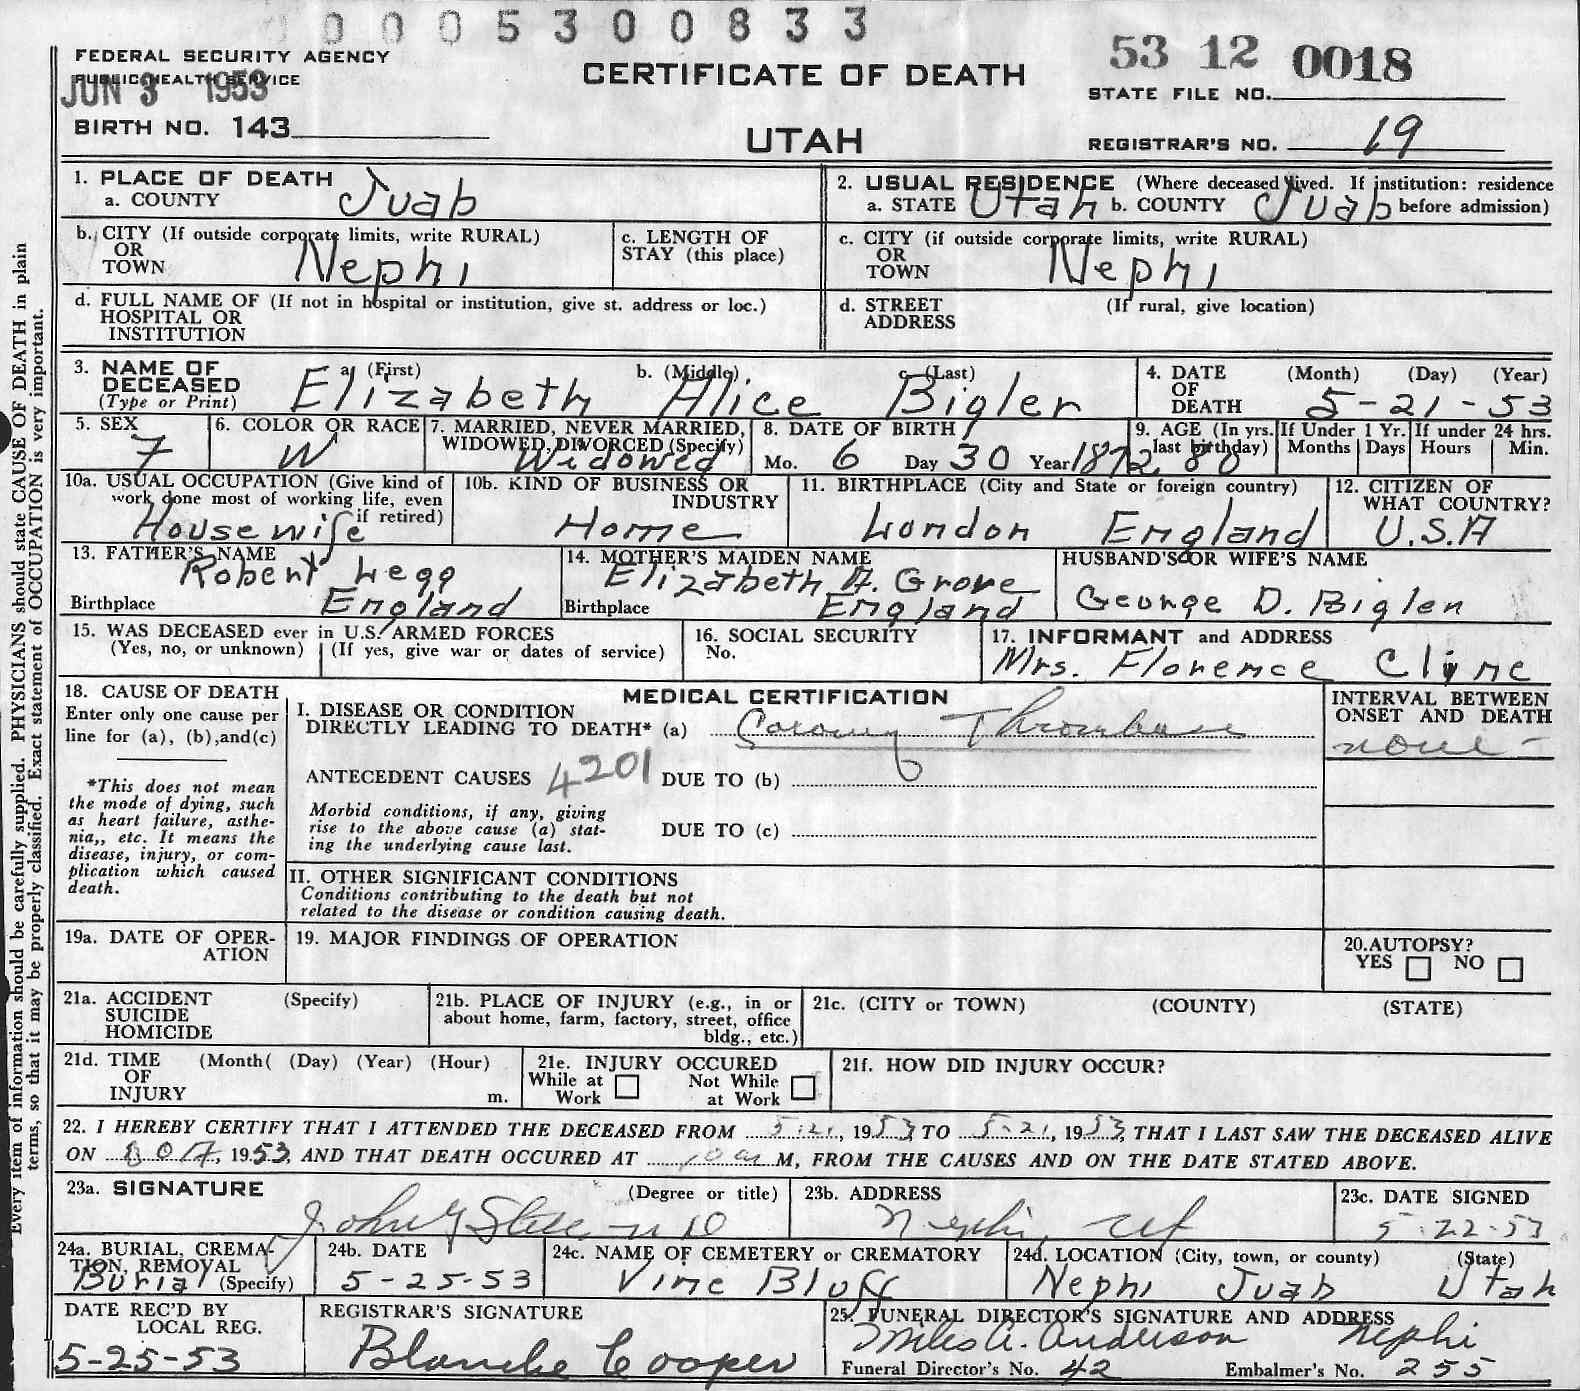 0005300833
FEDERAL SECURITY AGENCY
PUBLIC HEALTH SERVICE
JUN 3 1953
BIRTH NO. 143
CERTIFICATE OF DEATH
UTAH
53 12 0018
STATE FILE NO.
REGISTRAR'S NO. 19
1. PLACE OF DEATH
a. COUNTY Juab
2. USUAL RESIDENCE (Where deceased lived. If institution: residence before admission)
a. STATE Utah b. COUNTY Juab
b. CITY (If outside corporate limits, write RURAL)
OR
TOWN Nephi
c. LENGTH OF
STAY (this place)
c. CITY (if outside corporate limits, write RURAL)
OR
TOWN Nephi
d. FULL NAME OF (If not in hospital or institution, give st. address or loc.)
HOSPITAL OR
INSTITUTION
d. STREET (If rural, give location)
ADDRESS
3. NAME OF DECEASED
(Type or Print)
a. (First) b. (Middle) c. (Last)
Elizabeth Alice Bigler
4. DATE OF DEATH (Month) (Day) (Year)
5-21-53
5. SEX
7
6. COLOR OR RACE
W
7. MARRIED, NEVER MARRIED,
WIDOWED, DIVORCED (Specify)
Widowed
8. DATE OF BIRTH
Mo. 6 Day 30 Year 1872
9. AGE (In yrs. last birthday)
80
If Under 1 Yr.
Months Days
If under 24 hrs.
Hours Min.
10a. USUAL OCCUPATION (Give kind of
work done most of working life, even
if retired)
Housewife
10b. KIND OF BUSINESS OR
INDUSTRY
Home
11. BIRTHPLACE (City and State or foreign country)
London England
12. CITIZEN OF
WHAT COUNTRY?
U.S.A
13. FATHER'S NAME
Robert Legg
Birthplace England
14. MOTHER'S MAIDEN NAME
Elizabeth A. Grove
Birthplace England
HUSBAND'S OR WIFE'S NAME
George D. Bigler
15. WAS DECEASED ever in U.S. ARMED FORCES
(Yes, no, or unknown) (If yes, give war or dates of service)
16. SOCIAL SECURITY
No.
17. INFORMANT and ADDRESS
Mrs. Florence Cline
18. CAUSE OF DEATH
Enter only one cause per
line for (a), (b), and (c)
*This does not mean
the mode of dying, such
as heart failure, asthe-
nia,, etc. It means the
disease, injury, or com-
plication which caused
death.
MEDICAL CERTIFICATION
I. DISEASE OR CONDITION
DIRECTLY LEADING TO DEATH* (a) Coronary Thrombosis
ANTECEDENT CAUSES 4201 DUE TO (b)
Morbid conditions, if any, giving
rise to the above cause (a) stat-
ing the underlying cause last.
DUE TO (c)
INTERVAL BETWEEN
ONSET AND DEATH
none -
II. OTHER SIGNIFICANT CONDITIONS
Conditions contributing to the death but not
related to the disease or condition causing death.
19a. DATE OF OPER-
ATION
19. MAJOR FINDINGS OF OPERATION
20. AUTOPSY?
YES NO
21a. ACCIDENT (Specify)
SUICIDE
HOMICIDE
21b. PLACE OF INJURY (e.g., in or
about home, farm, factory, street, office
bldg., etc.)
21c. (CITY or TOWN) (COUNTY) (STATE)
21d. TIME (Month( (Day) (Year) (Hour)
OF
INJURY m.
21e. INJURY OCCURED
While at Work Not While at Work
21f. HOW DID INJURY OCCUR?
22. I HEREBY CERTIFY THAT I ATTENDED THE DECEASED FROM 5-21, 1953, TO 5-21, 1953, THAT I LAST SAW THE DECEASED ALIVE
ON 1953, AND THAT DEATH OCCURED AT M, FROM THE CAUSES AND ON THE DATE STATED ABOVE.
23a. SIGNATURE (Degree or title)
John Steele MD
23b. ADDRESS
Nephi, Ut
23c. DATE SIGNED
5-22-53
24a. BURIAL, CREMA-
TION, REMOVAL
(Specify)
Burial
24b. DATE
5-25-53
24c. NAME OF CEMETERY or CREMATORY
Vine Bluff
24d. LOCATION (City, town, or county) (State)
Nephi Juab Utah
DATE REC'D BY
LOCAL REG.
5-25-53
REGISTRAR'S SIGNATURE
Blanche Cooper
25. FUNERAL DIRECTOR'S SIGNATURE AND ADDRESS
Miles A. Anderson Nephi
Funeral Director's No. 42 Embalmer's No. 255
Every item of information should be carefully supplied. PHYSICIANS should state CAUSE OF DEATH in plain
terms, so that it may be properly classified. Exact statement of OCCUPATION is very important.